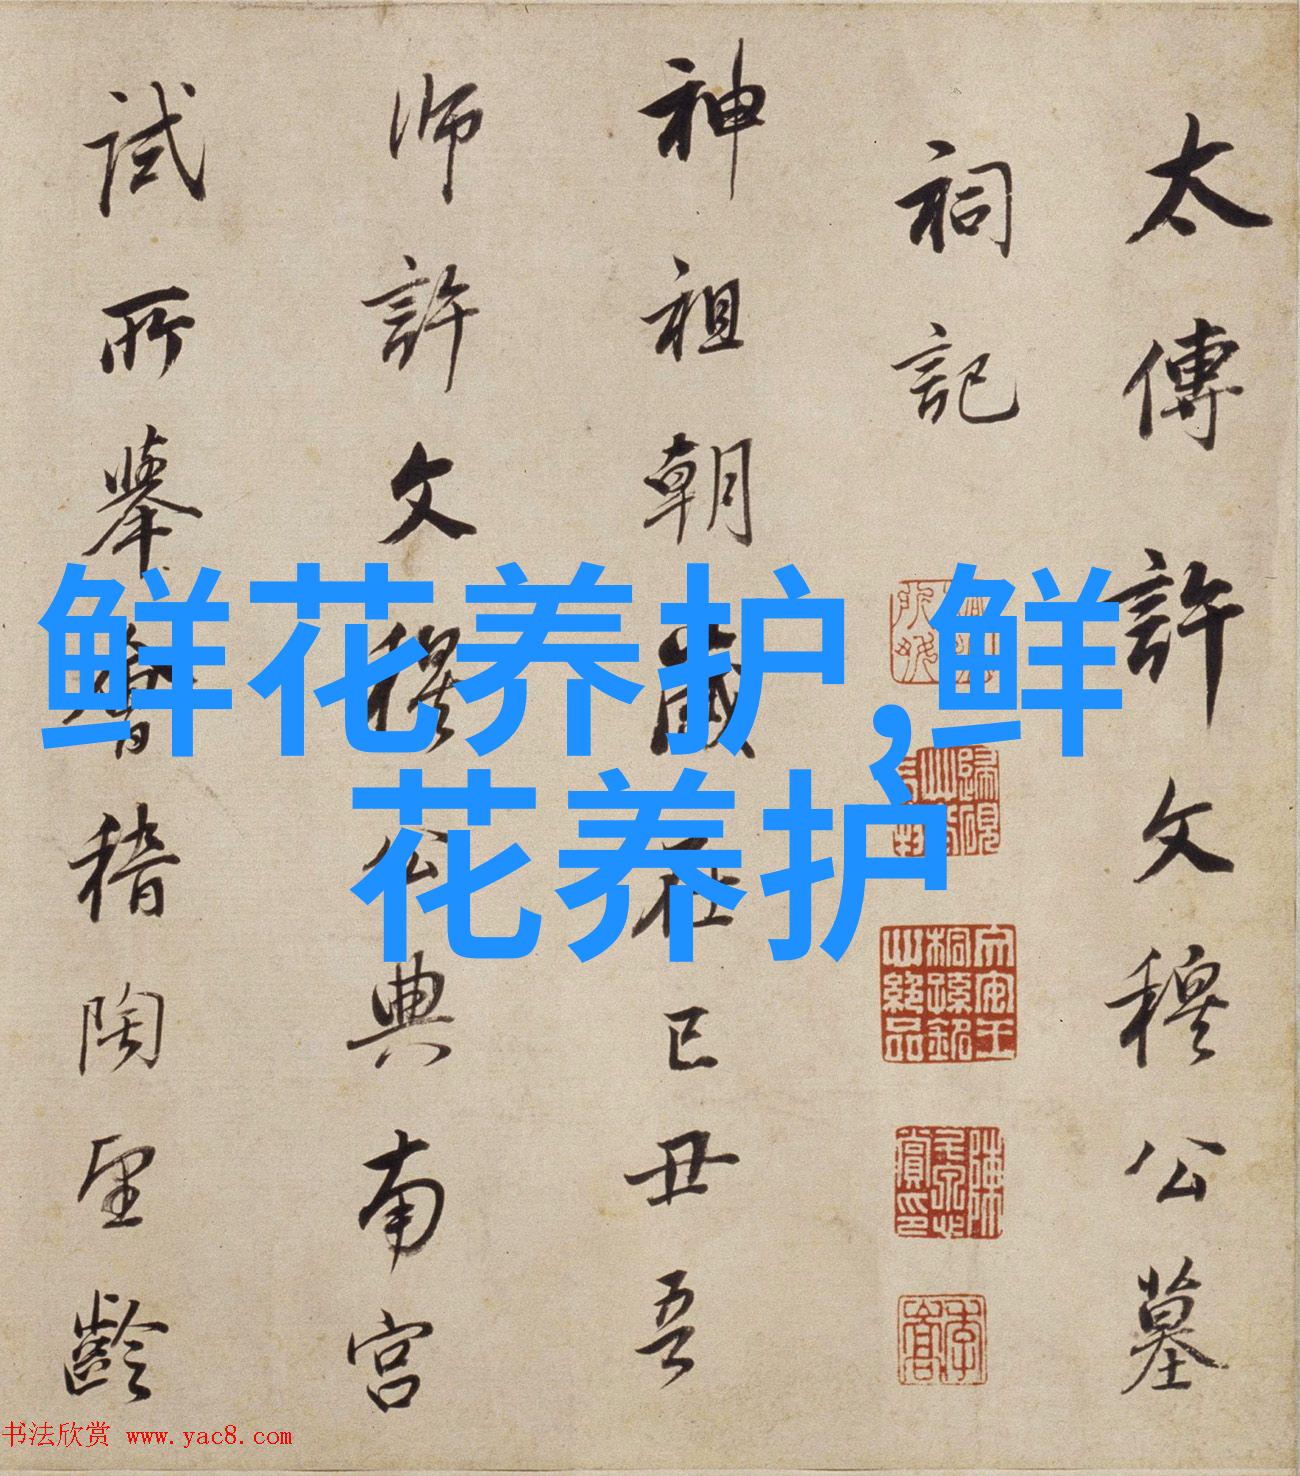 太傅許文穆公墓
祠記
神祖朝歲在己丑吾
師許文穆公典南宫
試所舉會稽陶望齡
鲜花养护,鲜
花养护
书法欣赏 www.yac8.com